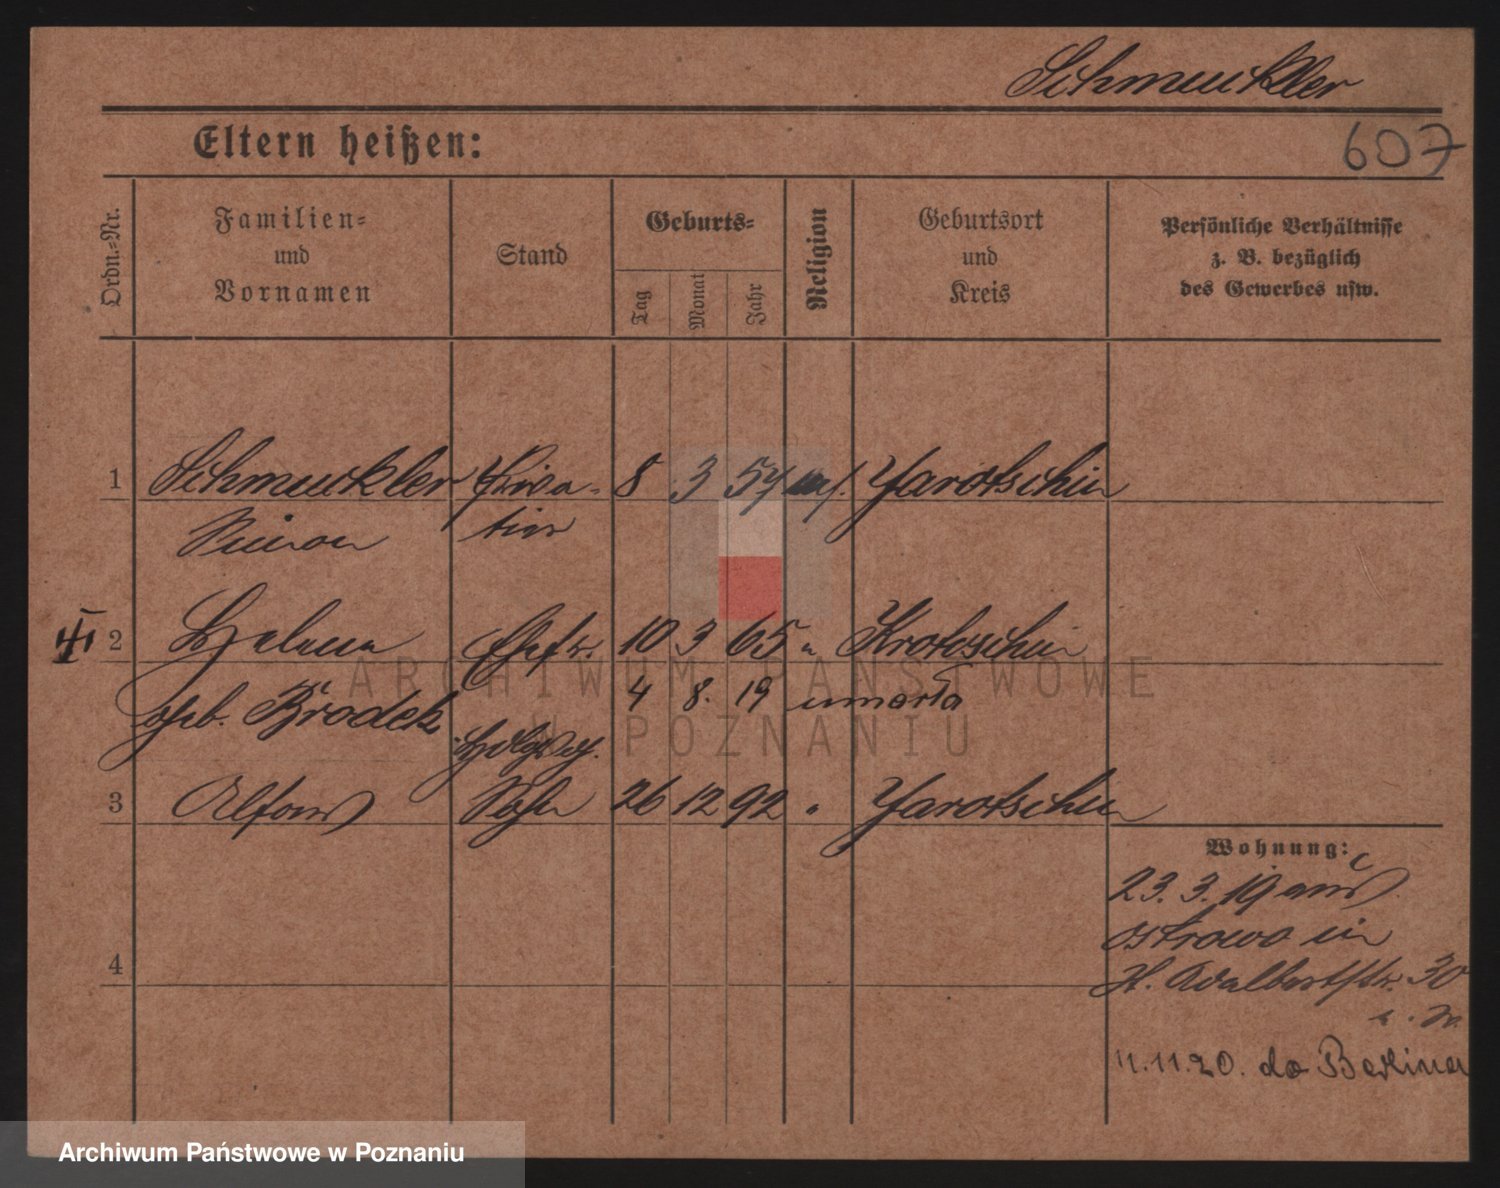 Schmuckler
Eltern heißen:
607
Ordn.-Nr.
Familien-
und
Vornamen
Stand
Geburts-
Tag
Monat
Jahr
Religion
Geburtsort
und
Kreis
Persönliche Verhältnisse
z. B. bezüglich
des Gewerbes usw.
1 Schmuckler Priva- 8 3 57 Jarotschin
Simon tier
2 Helena Ehefr. 10 3 65 " Krotoschin
4 8. 19 umarła
geb. Brodek
3 Alfons Sohn 26 12 92 " Jarotschin
Wohnung:
23. 3. 19 aus
Ostrowo in
Adalbertstr. 30
4
11.11.20. do Berlina
ARCHIWUM PAŃSTWOWE
W POZNANIU
Archiwum Państwowe w Poznaniu